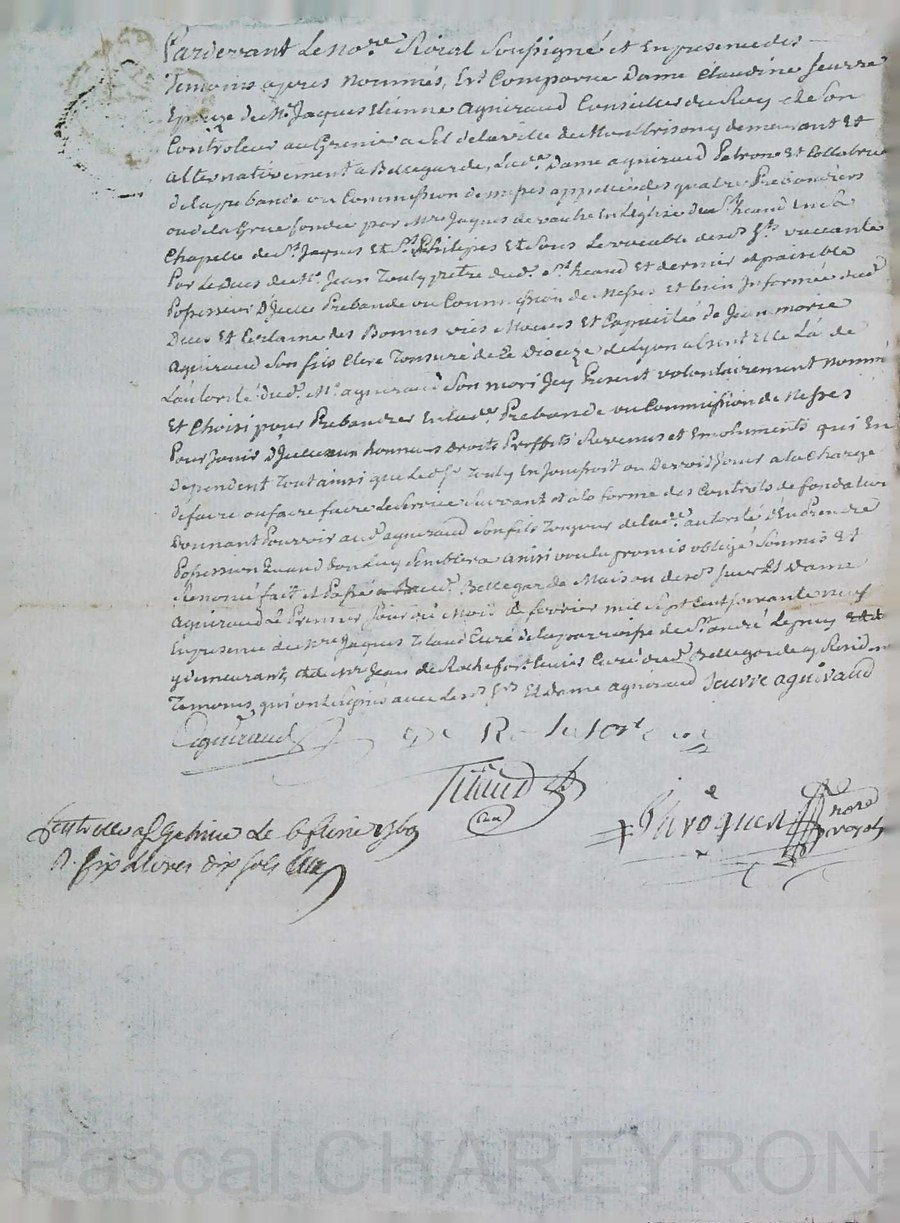 Pardevant Le Nore Roïal Soussigné et En presence des
Temoins apres Nommés, Est Comparüe Dame Claudine Jeuvre
Epouze du Mr Jaques Etienne Agniraud Conseiller du Roy et Son
Controleur au Grenie a Sel de la ville de Montbrison y demeurant Et
alternativement a Bellegarde, Lade Dame agniraud Patrone Et Collatrice
de la prebande ou Commission de messes appellée des quatre Prebandiers
ou de la Grue fondée par Mre Jaques de vauche En L'église de St heand En la
Chapelle de St Jaques Et St Philipes Et Sous Le vocable desds Sts vaccante
Par Le deces de Mre Jean Touly pretre dud. St heand Et dernier Et paisible
Possesseur D'Icelle Prebande ou Commission de Messes Et bien Informée des
Et Certaine des Bonnes vies Moeurs Et Capacités de Jean marie
Agniraud Son fils Clerc Tonsuré de Ce Dioceze de Lyon absent Elle La de
L'autorité dud. Mr agniraud Son mari Icy Present volontairement nommé
Et Choisi pour Prebandier En lade Prebande ou Commission de Messes
Pour Jouir D'Icelle aux honneurs droits Proffits Revenus et Emoluments qui En
Dependent Tout ainsi que Led Sr Touly En Jouissoit ou Devoit Jouir a la Charge
de faire ou faire faire Le Service Suivant et a la forme des Contrats de fondation
Donnant Pouvoir aud agniraud Son fils Toujours de lade autorité d'En Prendre
Possession Quand bon Luy Semblera ainsi voulu promis obligé Soumis Et
Renoncé fait et Passé aud. Bellegarde Maison desds Sieur Et Dame
Agniraud Le Premier Jour du Mois de fevrier mil Sept Cent Soixante neuf
En presence de Mre Jaques Tilaud Curé de la parroisse de St andré Le puy
y demeurant, et de Mre Jean de Rochefort Curé dud Bellegarde y Resid
Temoins, qui ont Signés avec Lesds Sr Et dame agniraud Jeuvre aguiraud
Aguiraud
De Rochefort
Tilaud
curé
Nore
royal
Controllé a St Galmier Le 6 fevrier 1769
R. six Livres dix sols
Pascal CHAREYRON